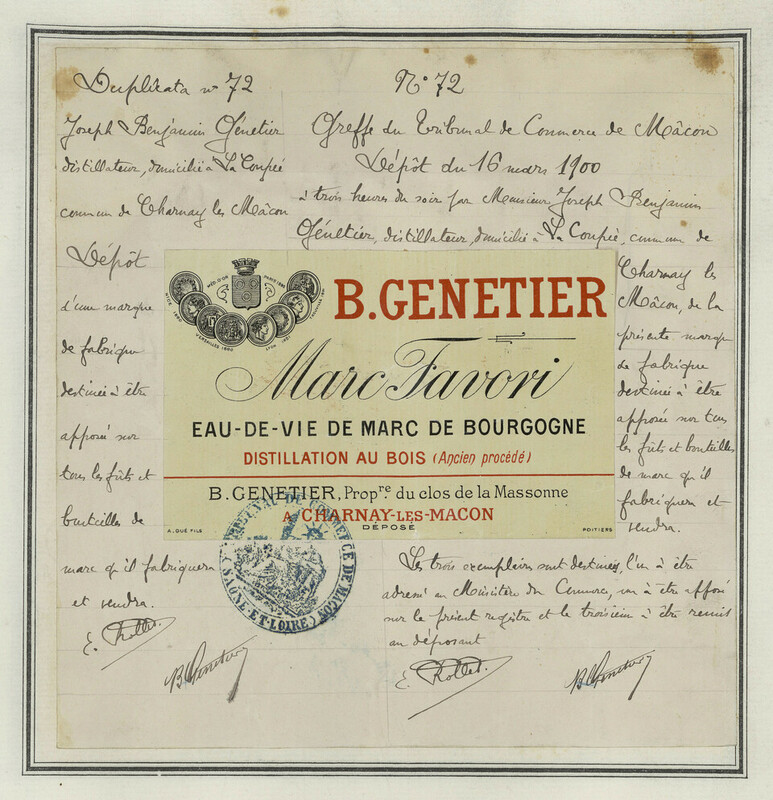 Duplicata n° 72
Joseph Benjamin Génetier
distillateur, domicilié à La Coupée
commune de Charnay les Mâcon
Dépôt
d'une marque
de fabrique
destinée à être
apposée sur
tous les fûts et
bouteilles de
marc qu'il fabriquera
et vendra.
E. Rollet
B Genetier
N° 72
Greffe du Tribunal de Commerce de Mâcon
Dépôt du 16 mars 1900
à trois heures du soir par Monsieur Joseph Benjamin
Génetier, distillateur, domicilié à La Coupée, commune de
Charnay les
Mâcon, de la
présente marque
de fabrique
destinée à être
apposée sur tous
les fûts et bouteilles
de marc qu'il
fabriquera et
vendra.
B. GENETIER
Marc Favori
EAU-DE-VIE DE MARC DE BOURGOGNE
DISTILLATION AU BOIS (Ancien procédé)
B. GENETIER, Propre. du clos de la Massonne
A CHARNAY-LES-MACON
DÉPOSÉ
A. DUÉ FILS
POITIERS
TRIBUNAL DE COMMERCE DE MACON
(SAÔNE-ET-LOIRE)
Les trois exemplaires sont destinés, l'un à être
adressé au Ministère du Commerce, un à être apposé
sur le présent registre et le troisième à être remis
au déposant
E. Rollet
B Genetier